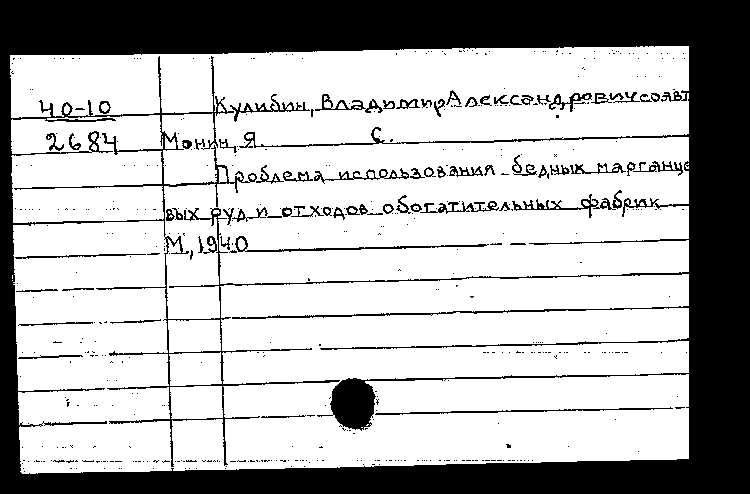 40-10 Кулибин, Владимир Александрович соавт
2684 Монин, Я. С.
Проблема использования бедных марганце
вых руд и отходов обогатительных фабрик
М., 1940